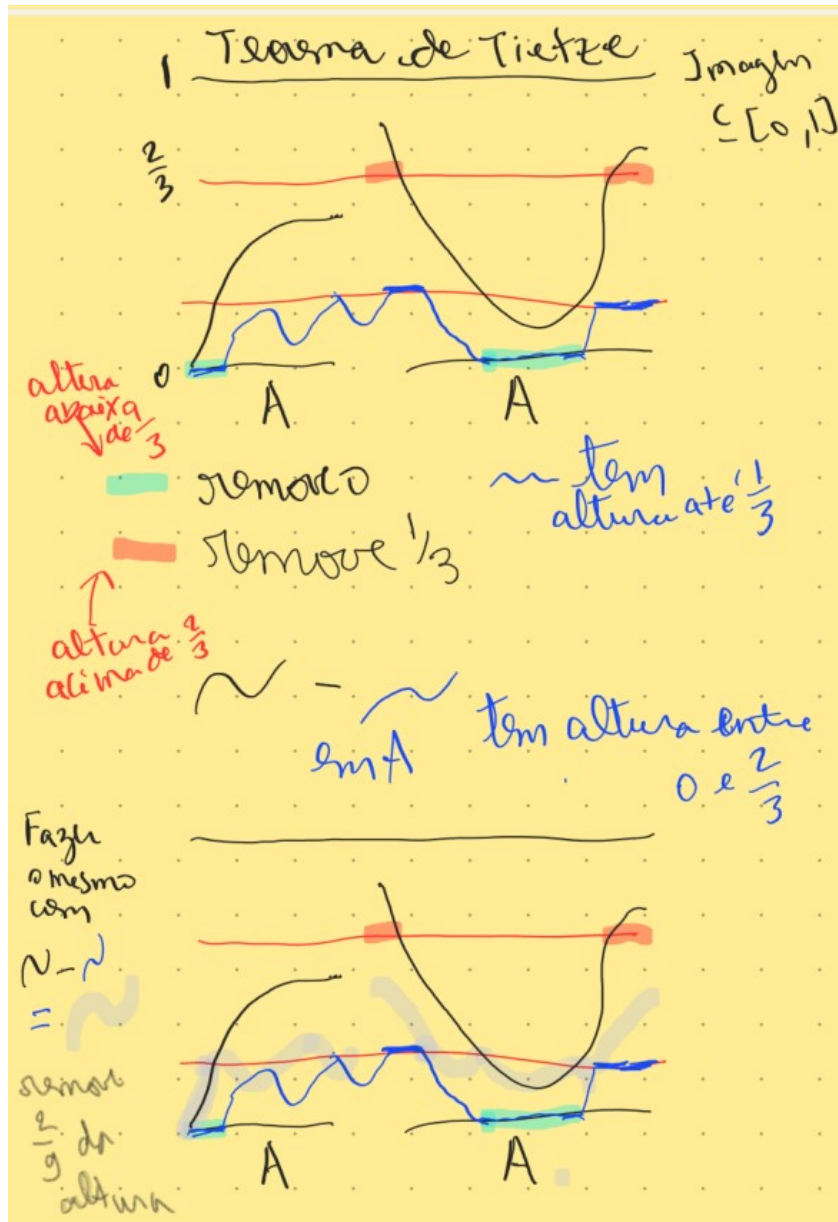 Teorema de Tietze
Imagem
⊆ [0,1]
1
2/3
0
A
A
altura
abaixo
de 1/3
remove 0
~ tem
altura até 1/3
remove 1/3
altura
acima de 2/3
~ - ~
em A
tem altura entre
0 e 2/3
Fazer
o mesmo
com
~ - ~
= ~
remove
2/9 da
altura
A
A